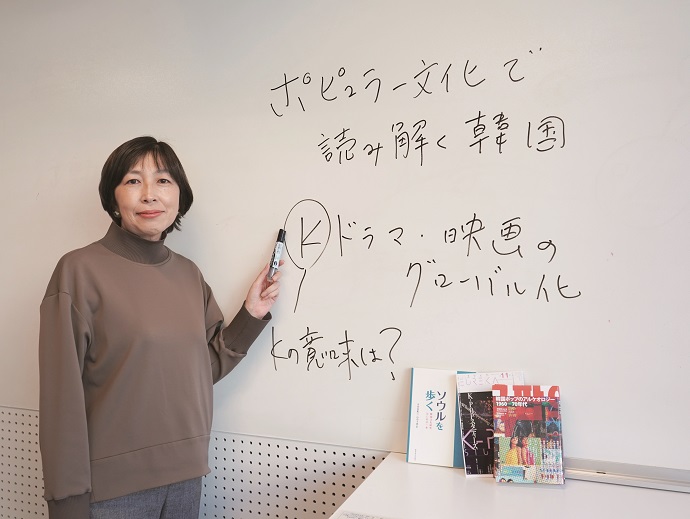 ポピュラー文化で
読み解く韓国
Kドラマ・映画の
グローバル化
Kの意味は?
ソウルを
歩く
韓国ポップのアルケオロジー
1960-70年代